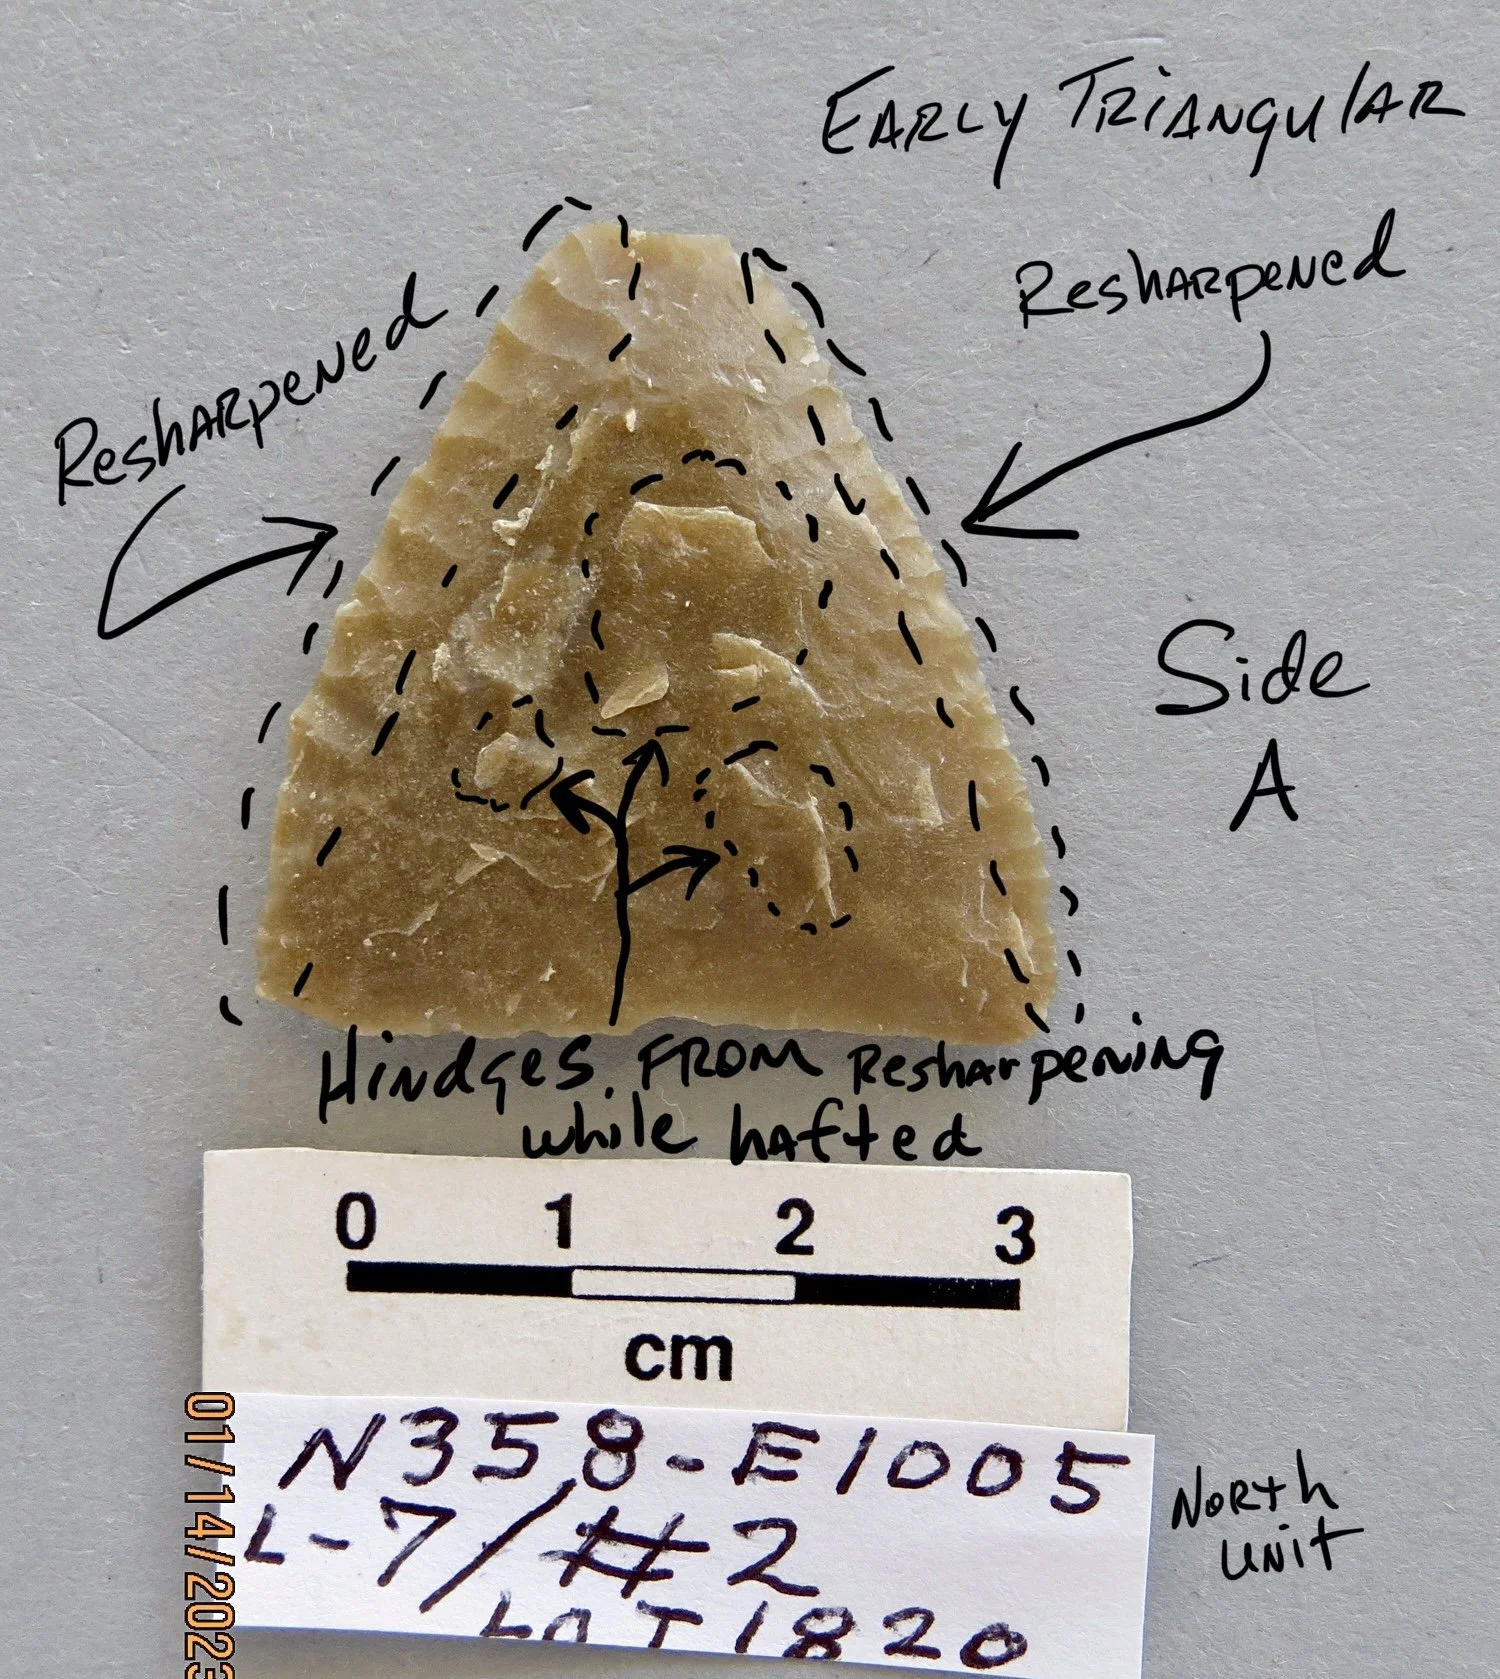 EARLY TRIANGULAR
Resharpened
Resharpened
Side
A
Hindges FROM Resharpening
while hafted
0 1 2 3
cm
N358-E1005
L-7/#2
LOT 1820
North
unit
01/14/2023